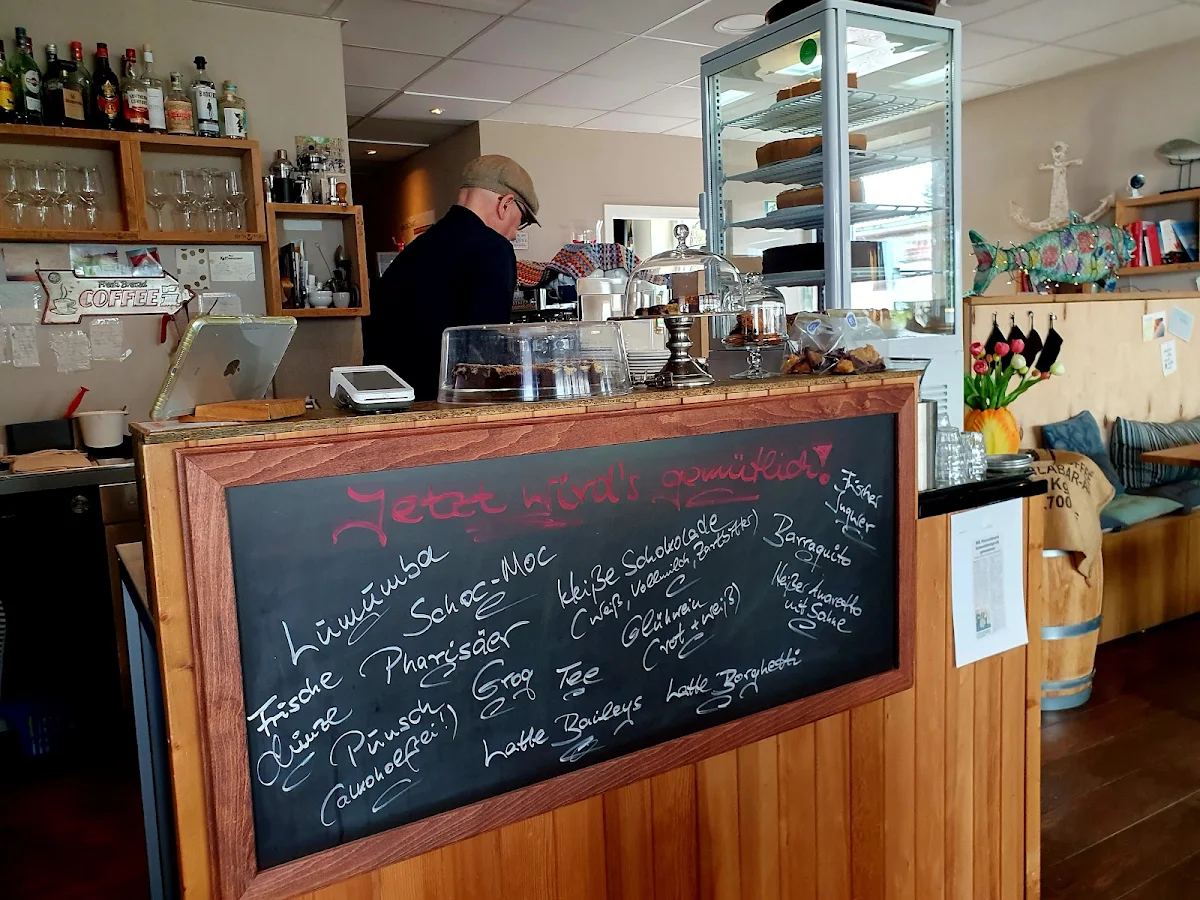 Fresh Brewed
COFFEE
Jetzt wird's gemütlich!
Lumumba
Schoc-Moc
Heiße Schokolade
(weiß, Vollmilch, Zartbitter)
Barraquito
Frischer
Ingwer
Frische
Minze
Pharisäer
Grog
Tee
Glühwein
(rot + weiß)
Heißer Amaretto
mit Sahne
Punsch
(alkoholfrei!)
Latte Baileys
Latte Borghetti
KG
700